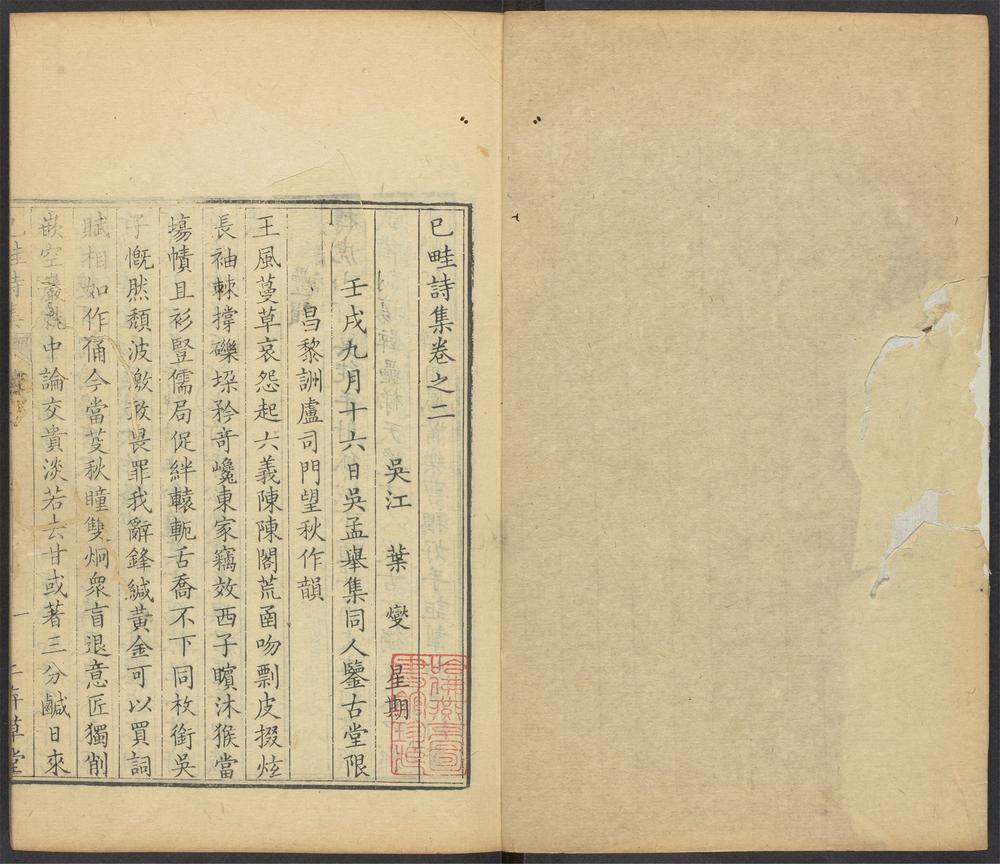 已畦詩集卷之二
吳江 葉燮 星期
壬戌九月十六日吳孟舉集同人鑒古堂限
昌黎詶盧司門望秋作韻
王風蔓草哀怨起六義陳陳閣荒凾吻剽皮掇炫
長袖棘撐礫垛矜奇巉東家竊效西子矉沐猴當
場幘且衫豎儒局促絆轅軛舌喬不下同枚銜吳
子慨然頹波激放畏罪我辭鋒緘黃金可以買詞
賦相如作俑今當芟秋瞳雙炯眾盲退意匠獨削
嵌空巖就中論交貴淡若去甘或著三分鹹日來
已畦詩集
一
二弃草堂
哈佛燕京圖書館珍藏